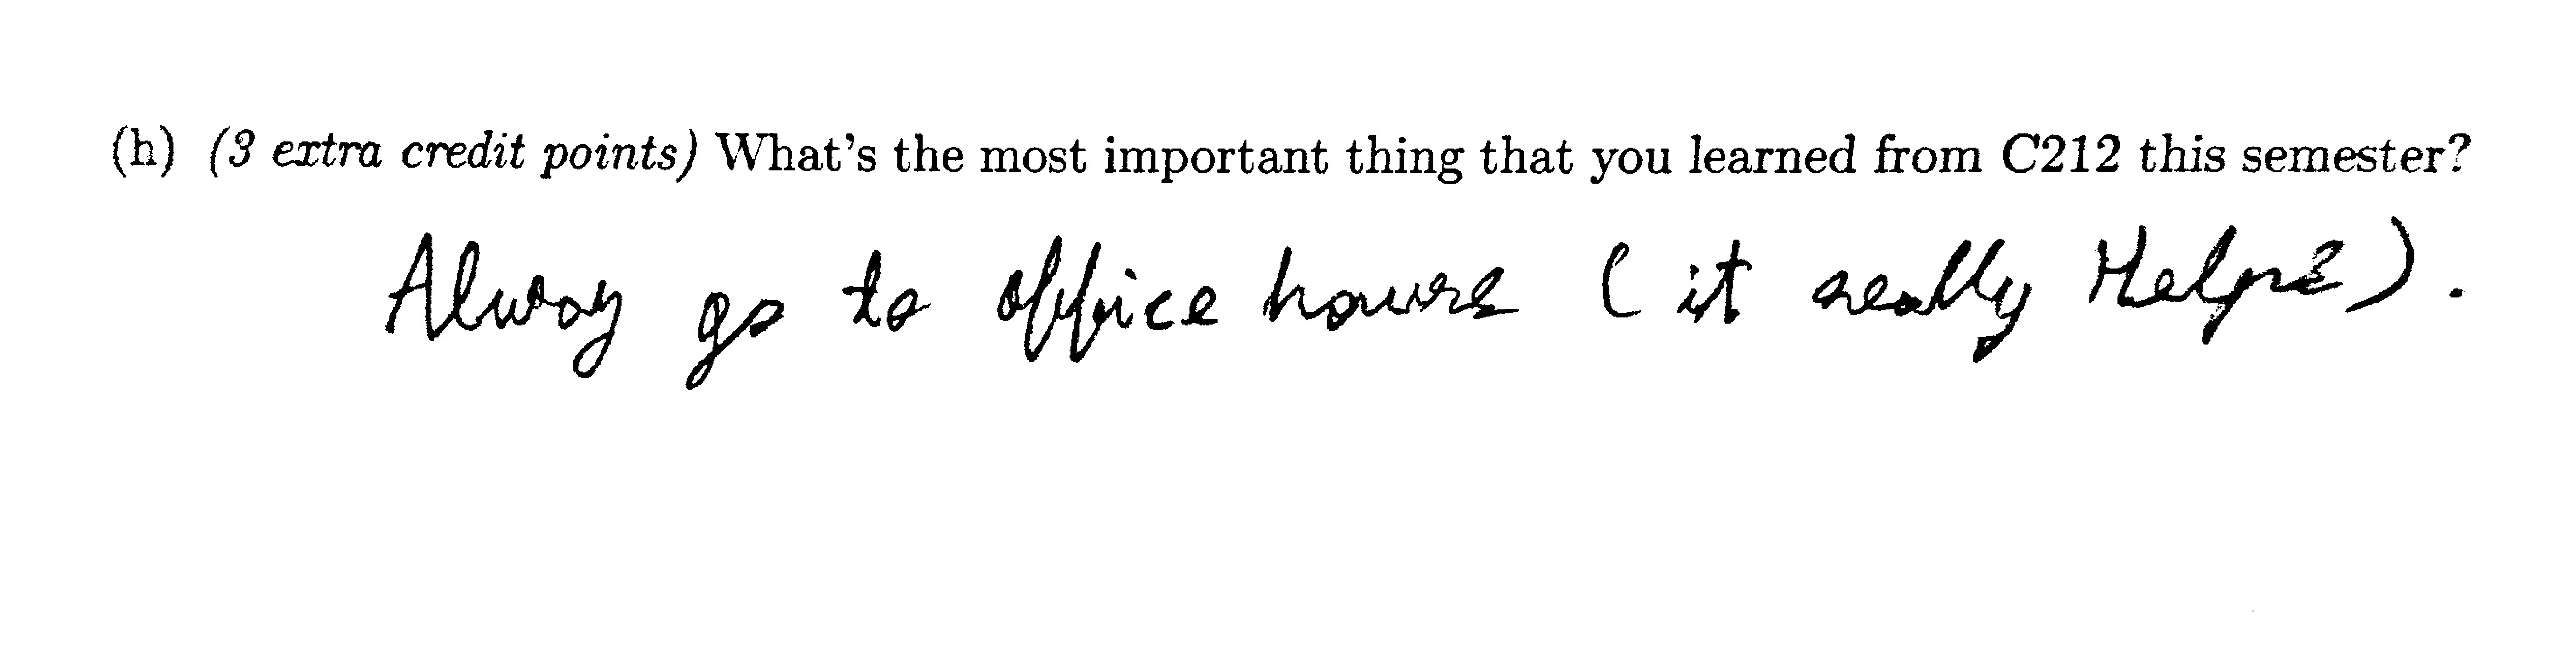 (h) (3 extra credit points) What's the most important thing that you learned from C212 this semester?
Alway go to office hours (it really Helps).